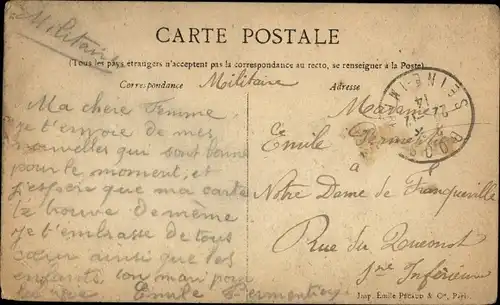 Militaire
CARTE POSTALE
(Tous les pays étrangers n'acceptent pas la correspondance au recto, se renseigner à la Poste)
Correspondance
Militaire
Adresse
Ma chere Femme
je t'envoie de mes
nouvelles qui sont bonne
pour le moment, et
j'espère que ma carte
te trouve de même
Je t'embrasse de tous
cœur ainsi que les
enfants ton mari pour
la vie Emile
Madame
Emile
à
Notre Dame de Franqueville
Rue du
Sne Inférieure
14
Imp. Emile Pécaud & Cie, Paris.